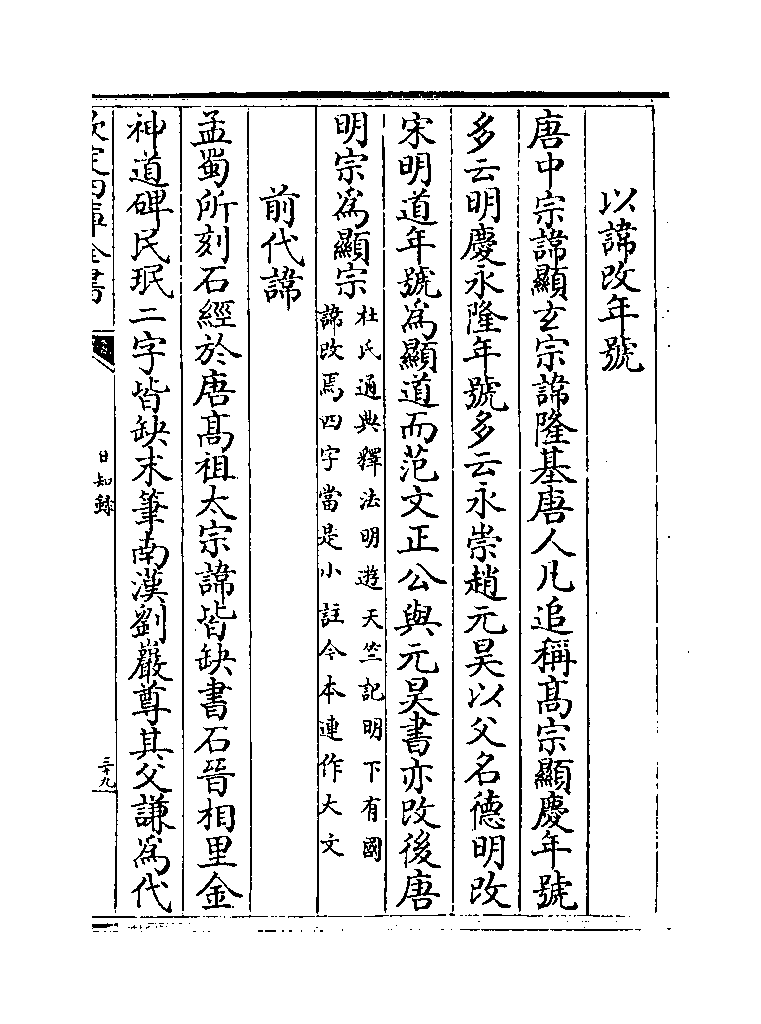 以諱改年號
唐中宗諱顯玄宗諱隆基唐人凡追稱髙宗顯慶年號
多云明慶永隆年號多云永崇趙元昊以父名德明改
宋明道年號為顯道而范文正公與元昊書亦改後唐
明宗為顯宗
杜氏通典釋法明遊天竺記明下有國
諱改焉四字當是小註今本連作大文
前代諱
孟蜀所刻石經於唐髙祖太宗諱皆缺書石晉相里金
神道碑民珉二字皆缺末筆南漢劉巖尊其父謙為代
欽定四庫全書
日知錄
三十九